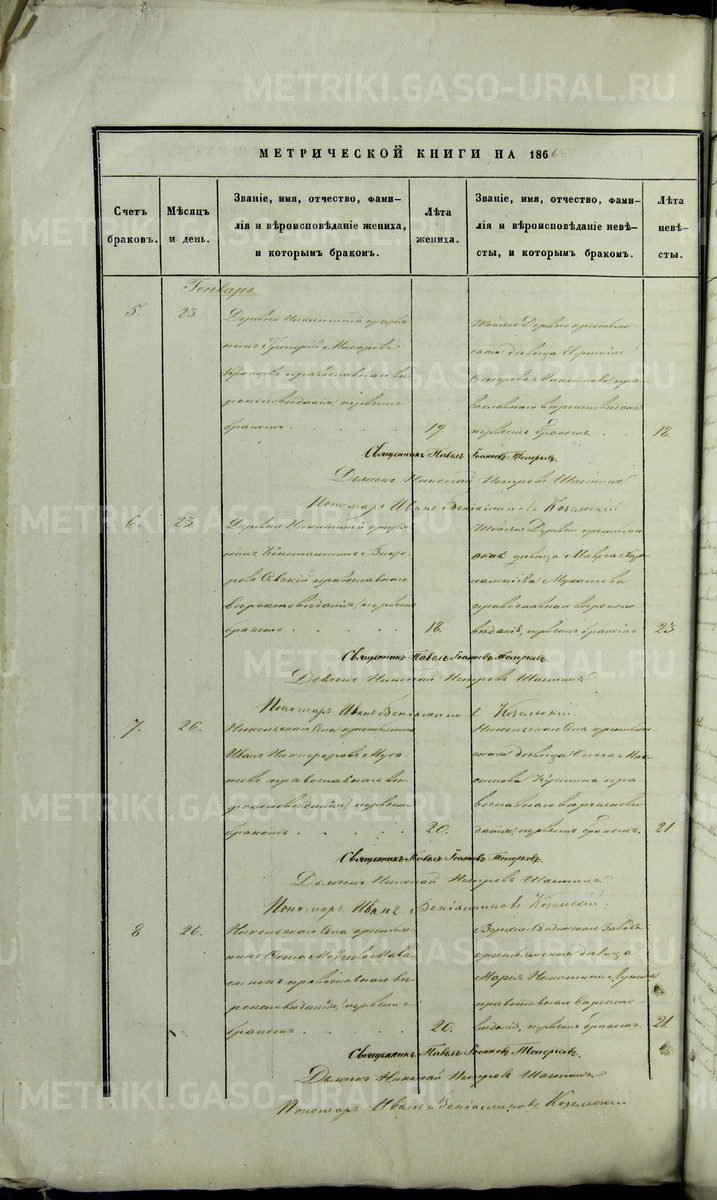 METRIKI.GASO-URAL.RU
МЕТРИЧЕСКОЙ КНИГИ НА 186
Счетъ браковъ.
Мѣсяцъ и день.
Званіе, имя, отчество, фами-
лія и вѣроисповѣданіе жениха,
и которымъ бракомъ.
Лѣта жениха.
Званіе, имя, отчество, фами-
лія и вѣроисповѣданіе невѣ-
сты, и которымъ бракомъ.
Лѣта невѣ-
сты.
Генварь
5 23
Деревни Никитиной крестья
нинъ Григорій Макаровъ
православнаго вѣ
роисповѣданія, первымъ
бракомъ 19
Тойже Деревни крестьян
ская дѣвица
Максимова пра
вославнаго вѣроисповѣданія
первымъ бракомъ 18.
Священникъ Павелъ Іоанновъ Топорковъ.
Дьячекъ Николай Петровъ
Пономарь Иванъ Веніаминовъ Козельскій
6. 23.
Деревни Никитиной крестья
нинъ Константинъ
православнаго
вѣроисповѣданія, первымъ
бракомъ 18.
Тойже Деревни крестьян
ская дѣвица Мавра
православнаго вѣроиспо
вѣданія, первымъ бракомъ 23
Священникъ Павелъ Іоанновъ Топорковъ.
Дьячекъ Николай Петровъ
Пономарь Иванъ Веніаминовъ Козельскій
7. 26.
Никольскаго Села крестьянинъ
Иванъ Никифоровъ
православнаго вѣ
роисповѣданія, первымъ
бракомъ 20.
Никольскаго Села крестьян
ская дѣвица
пра
вославнаго вѣроисповѣ
данія, первымъ бракомъ. 21
Священникъ Павелъ Іоанновъ Топорковъ.
Дьячекъ Николай Петровъ
Пономарь Иванъ Веніаминовъ Козельскій.
8 26.
Никольскаго Села крестья
нинъ
православнаго вѣ
роисповѣданія, первымъ
бракомъ 20.
Завода
крестьянская дѣвица
Марія Никитина
православнаго вѣроиспо
вѣданія, первымъ бракомъ. 21
Священникъ Павелъ Іоанновъ Топорковъ.
Дьячекъ Николай Петровъ
Пономарь Иванъ Веніаминовъ Козельскій